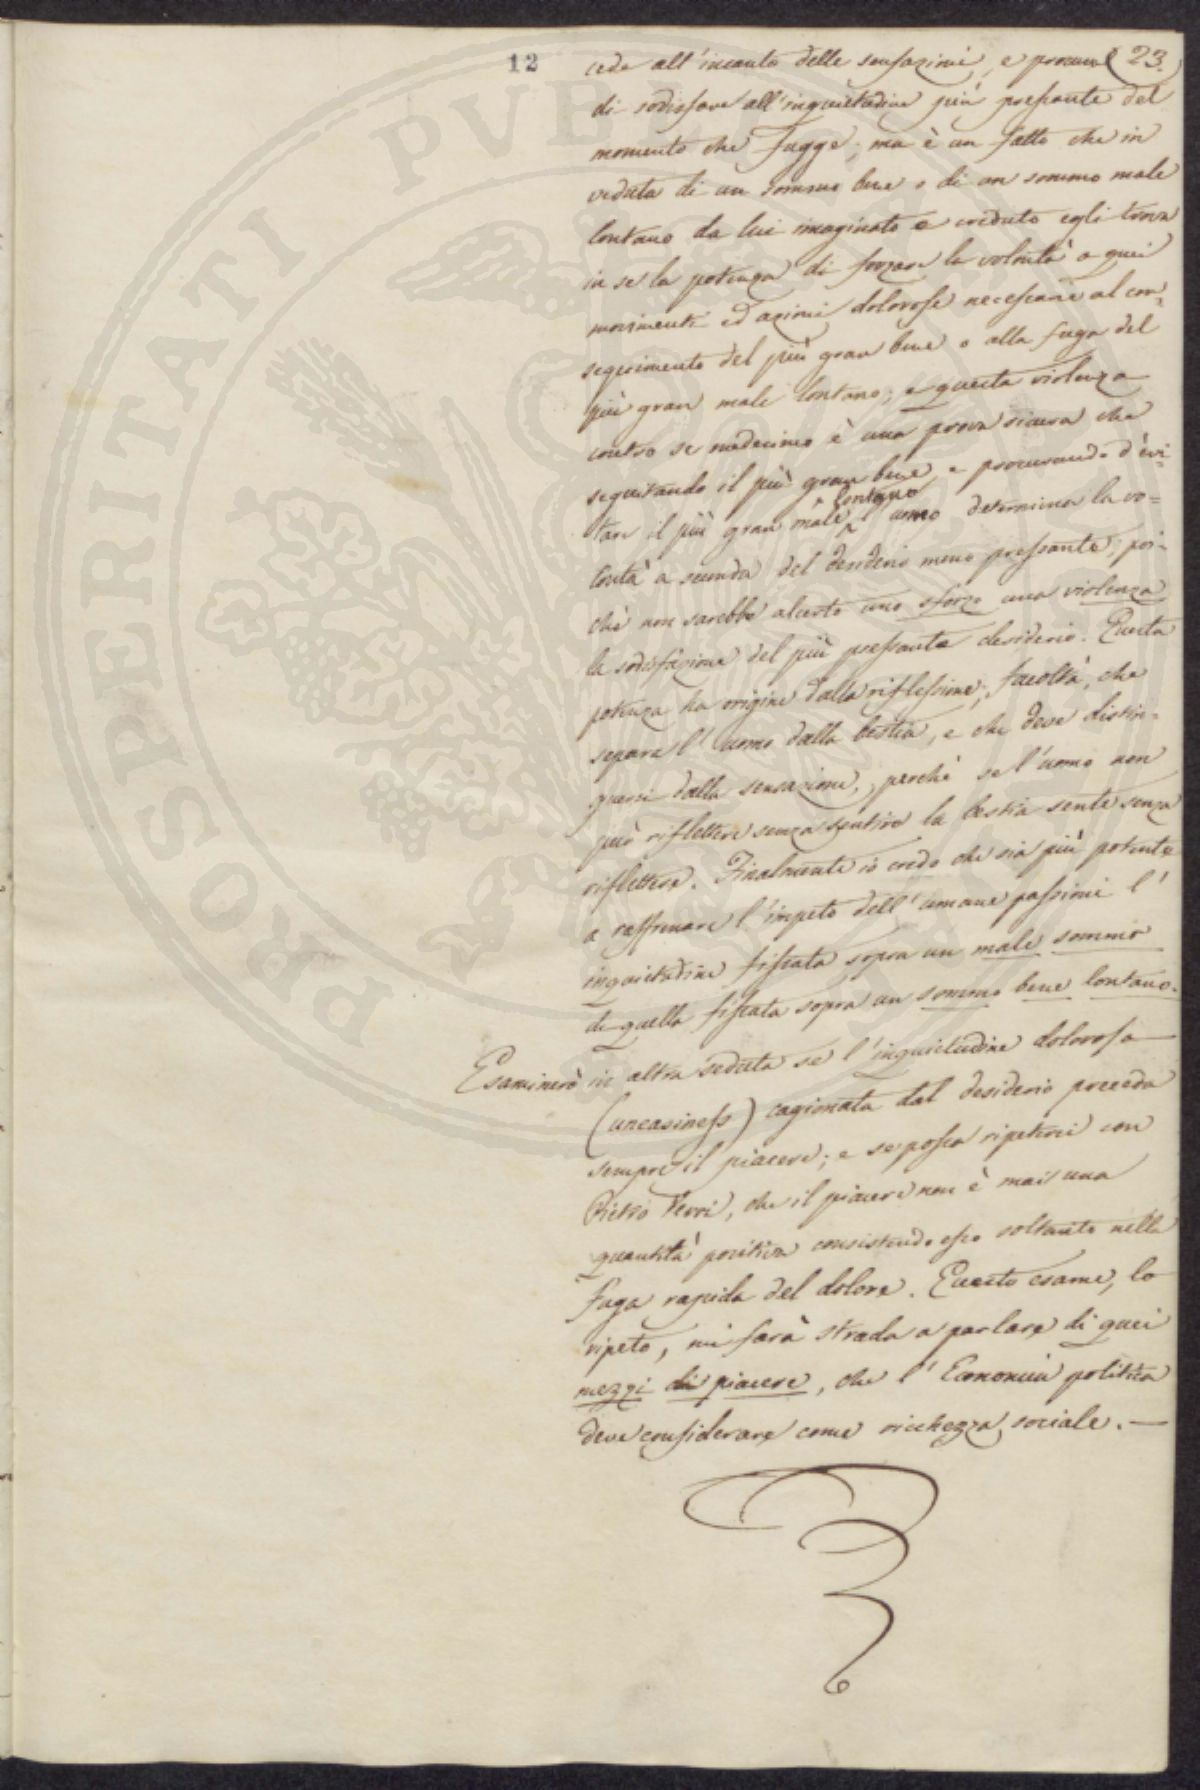 12
23.
cede all'incanto delle sensazioni, e procura
di sodisfare all'inquietudine più pressante del
momento che fugge; ma è un fatto che in
veduta di un sommo bene o di un sommo male
lontano da lui imaginato e creduto egli trova
in se la potenza di forzare la volontà a quei
movimenti ed azioni dolorose necessarie al con=
seguimento del più gran bene o alla fuga del
più gran male lontano; e questa violenza
contro se medesimo è una prova sicura che
seguitando il più gran bene e procurando d'evi=
tare il più gran male lontano l'uomo determina la vo=
lontà a seconda del desiderio meno pressante; poi=
chè non sarebbe al certo uno sforzo una violenza
la sodisfazione del più pressante desiderio. Questa
potenza ha origine dalla riflessione; facoltà, che
separa l'uomo dalla bestia, e che deve distin=
guersi dalla sensazione, perchè se l'uomo non
può riflettere senza sentire la bestia sente senza
riflettere. Finalmente io credo che sia più potente
a raffrenare l'impeto dell'umane passioni l'
inquietudine fissata sopra un male sommo
di quella fissata sopra un sommo bene lontano.
Esaminerò in altra seduta se l'inquietudine dolorosa
(uneasiness) cagionata dal desiderio preceda
sempre il piacere; e se possa ripetersi con
Pietro Verri, che il piacere non è mai una
quantità positiva consistendo esso soltanto nella
fuga rapida del dolore. Questo esame, lo
ripeto, mi farà strada a parlare di quei
mezzi di piacere, che l'Economia politica
deve considerare come ricchezza sociale. —
PROSPERITATI PUBLICAE